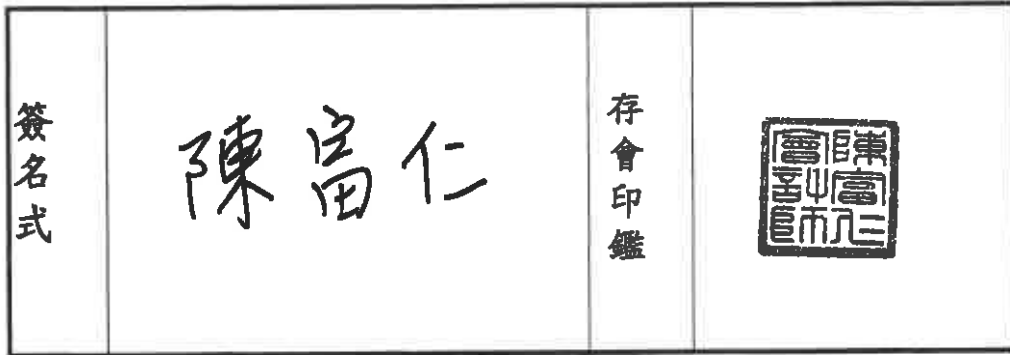 簽名式
陳富仁
存會印鑑
陳富仁
會計師